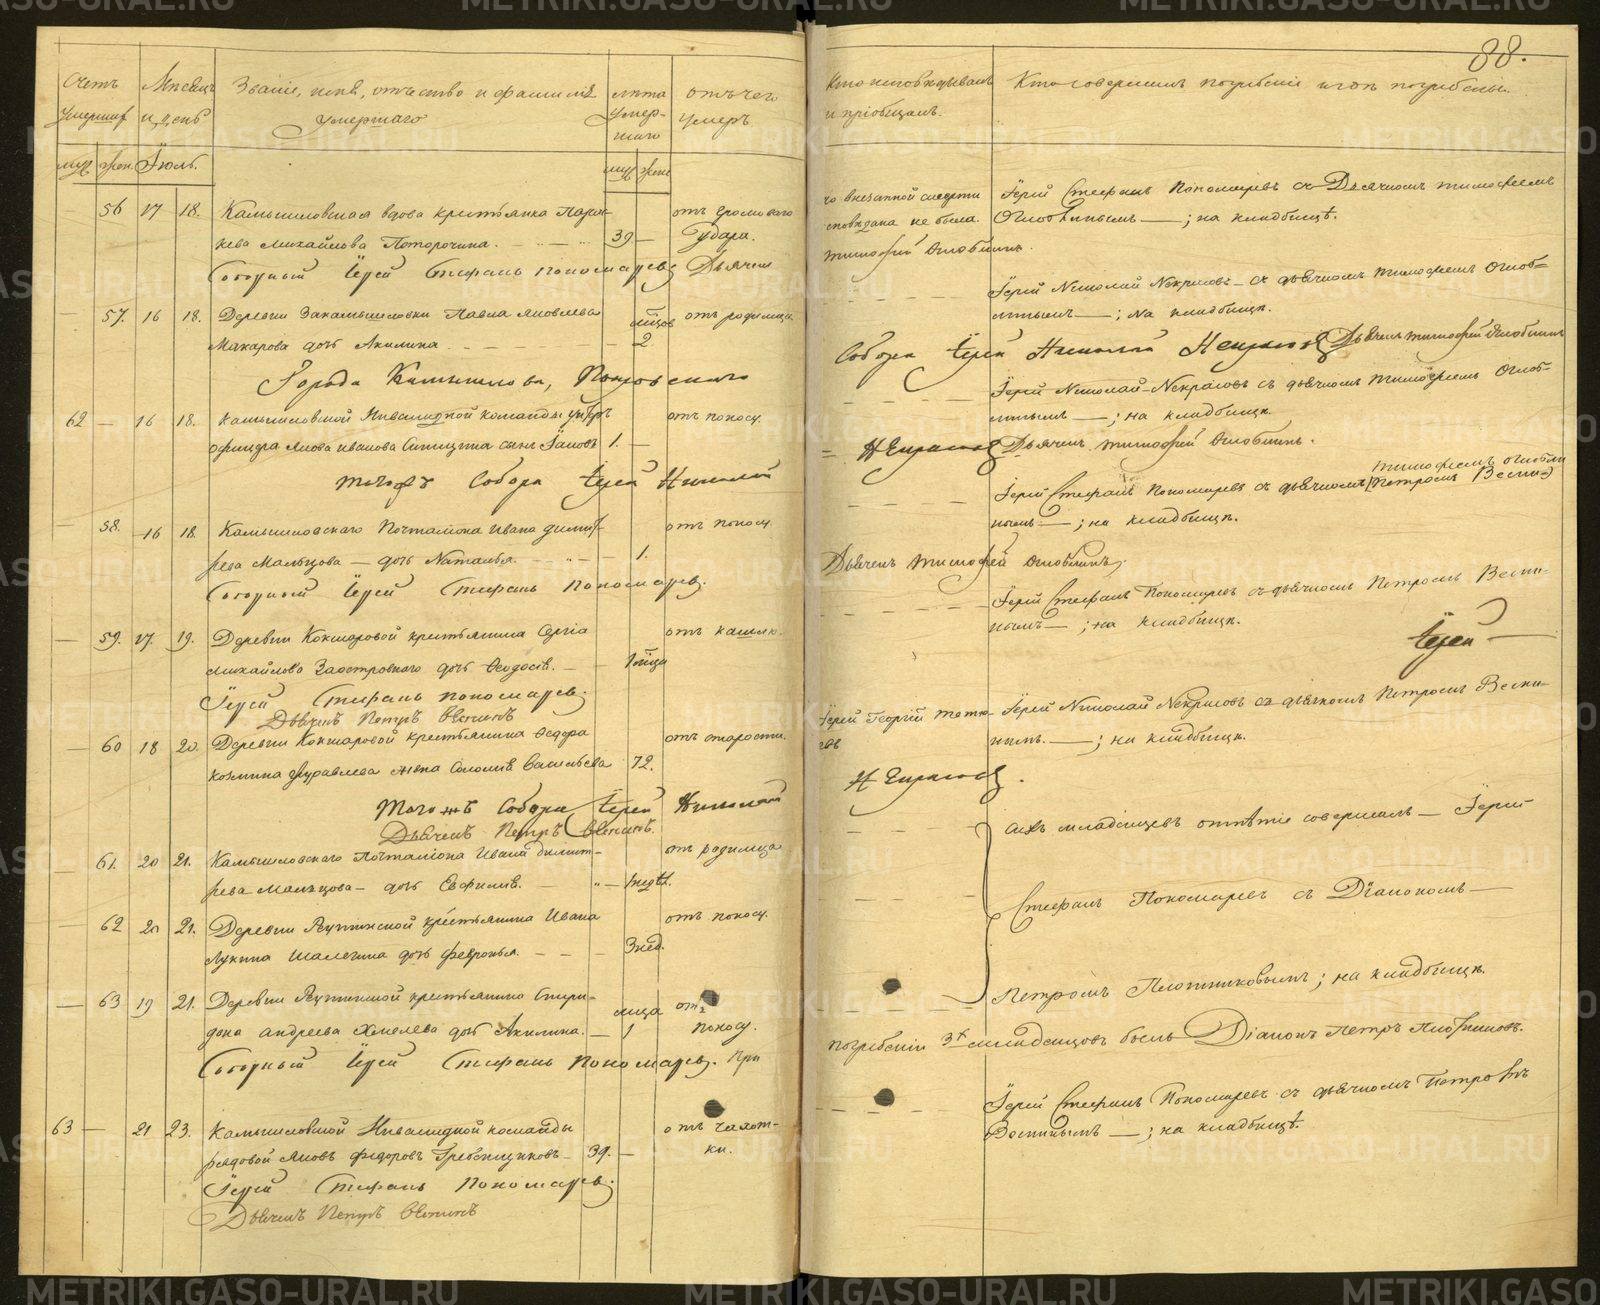 88.
Счетъ
умершиХ
муж жен.
Мѣсяцъ
и день
Іюль.
Званіе, имя, отчество и фамилія
умершаго
лѣта
умер-
шаго
муж жен
отъ чего
умеръ.
56 17 18. Камышловская вдова крестьянка Парас-
кева Михайлова Поторочина. 39 — отъ громоваго
удара.
Соборный Іерей Стефанъ Пономаревъ Дьячекъ
— 57. 16 18. Деревни Закамышловки Павла Яковлева
Макарова дочь Акилина — мѣсцов 2 отъ родимца
Города Камышлова, Покровскаго
62 — 16 18. Камышловской Инвалидной команды унтеръ
офицера Якова Иванова сынъ 1. — отъ поносу.
тогожъ Собора Іерей Николай
— 58. 16 18. Камышловскаго Почталіона Ивана Димит-
рева Мальцова — дочь Наталья 1. отъ поносу.
Соборный Іерей Стефанъ Пономаревъ.
— 59. 17. 19. Деревни Кокшаровой крестьянина Сергія
Михайлова Заостровнаго дочь Ѳеодосія. — отъ кашлю.
Іерей Стефанъ Пономаревъ.
Дьячекъ Петръ Веснинъ
— 60 18 20. Деревни Кокшаровой крестьянина Ѳедора
Козмина Журавлева жена Соломія Васильева 72. отъ старости.
тогожъ Собора Іерей Николай
Дьячекъ Петръ Веснинъ.
— 61. 20 21. Камышловскаго Почталіона Ивана Димит-
рева Мальцова — дочь Евфимія. — отъ родимца
— 62 20 21. Деревни крестьянина Ивана
Лукина Шалегина дочь Февронья. — 3 нед. отъ поносу.
— 63 19 21. Деревни крестьянина Спири-
дона Андреева Хмелева дочь Акилина. — мѣсяца 1 отъ
поносу.
Соборный Іерей Стефанъ Пономаревъ. При
63 — 21 23. Камышловской Инвалидной команды
рядовой Яковъ Федоровъ Гребенщиковъ — 39. — отъ чахот-
ки.
Іерей Стефанъ Пономаревъ.
Дьячекъ Петръ Веснинъ
Кто исповѣдывалъ
и пріобщалъ.
Кто совершалъ погребеніе и гдѣ погребены.
по внезапной смерти
исповѣдана не была
Іерей Стефанъ Пономаревъ съ Дьячкомъ Тимофеемъ
Оглоблинымъ — ; на кладбищѣ.
Тимофей Оглоблинъ.
Іерей Николай Некрасовъ — съ дьячкомъ Тимофеемъ Оглоб-
линымъ — ; на кладбищѣ.
Собора Іерей Николай Некрасовъ Дьячекъ Тимофей Оглоблинъ
Іерей Николай Некрасовъ съ дьячкомъ Тимофеемъ Оглоб-
линымъ — ; на кладбищѣ.
Некрасовъ Дьячекъ Тимофей Оглоблинъ.
Тимофеемъ Оглобли
Іерей Стефанъ Пономаревъ съ дьячкомъ (Петромъ Весни-)
нымъ — ; на кладбищѣ.
Дьячекъ Тимофей Оглоблинъ.
Іерей Стефанъ Пономаревъ съ дьячкомъ Петромъ Весни-
нымъ — ; на кладбищѣ.
Іерей —
Іерей Георгій
Іерей Николай Некрасовъ съ дьячкомъ Петромъ Весни-
нымъ. — ; на кладбищѣ.
Некрасовъ.
сихъ младенцевъ отпѣтіе совершалъ — Іерей
Стефанъ Пономаревъ съ Діакономъ —
Петромъ Плотниковымъ; на кладбищѣ.
погребеніи 3х младенцовъ былъ Діаконъ Петръ Плотниковъ.
Іерей Стефанъ Пономаревъ съ дьячкомъ Петромъ
Веснинымъ — ; на кладбищѣ.
METRIKI.GASO-URAL.RU